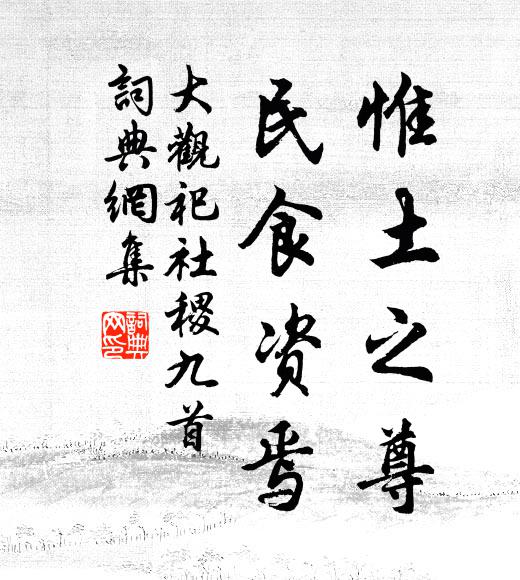 惟土之尊
民食资焉
大觀祀社稷九首
詞典網集
詞典
网印